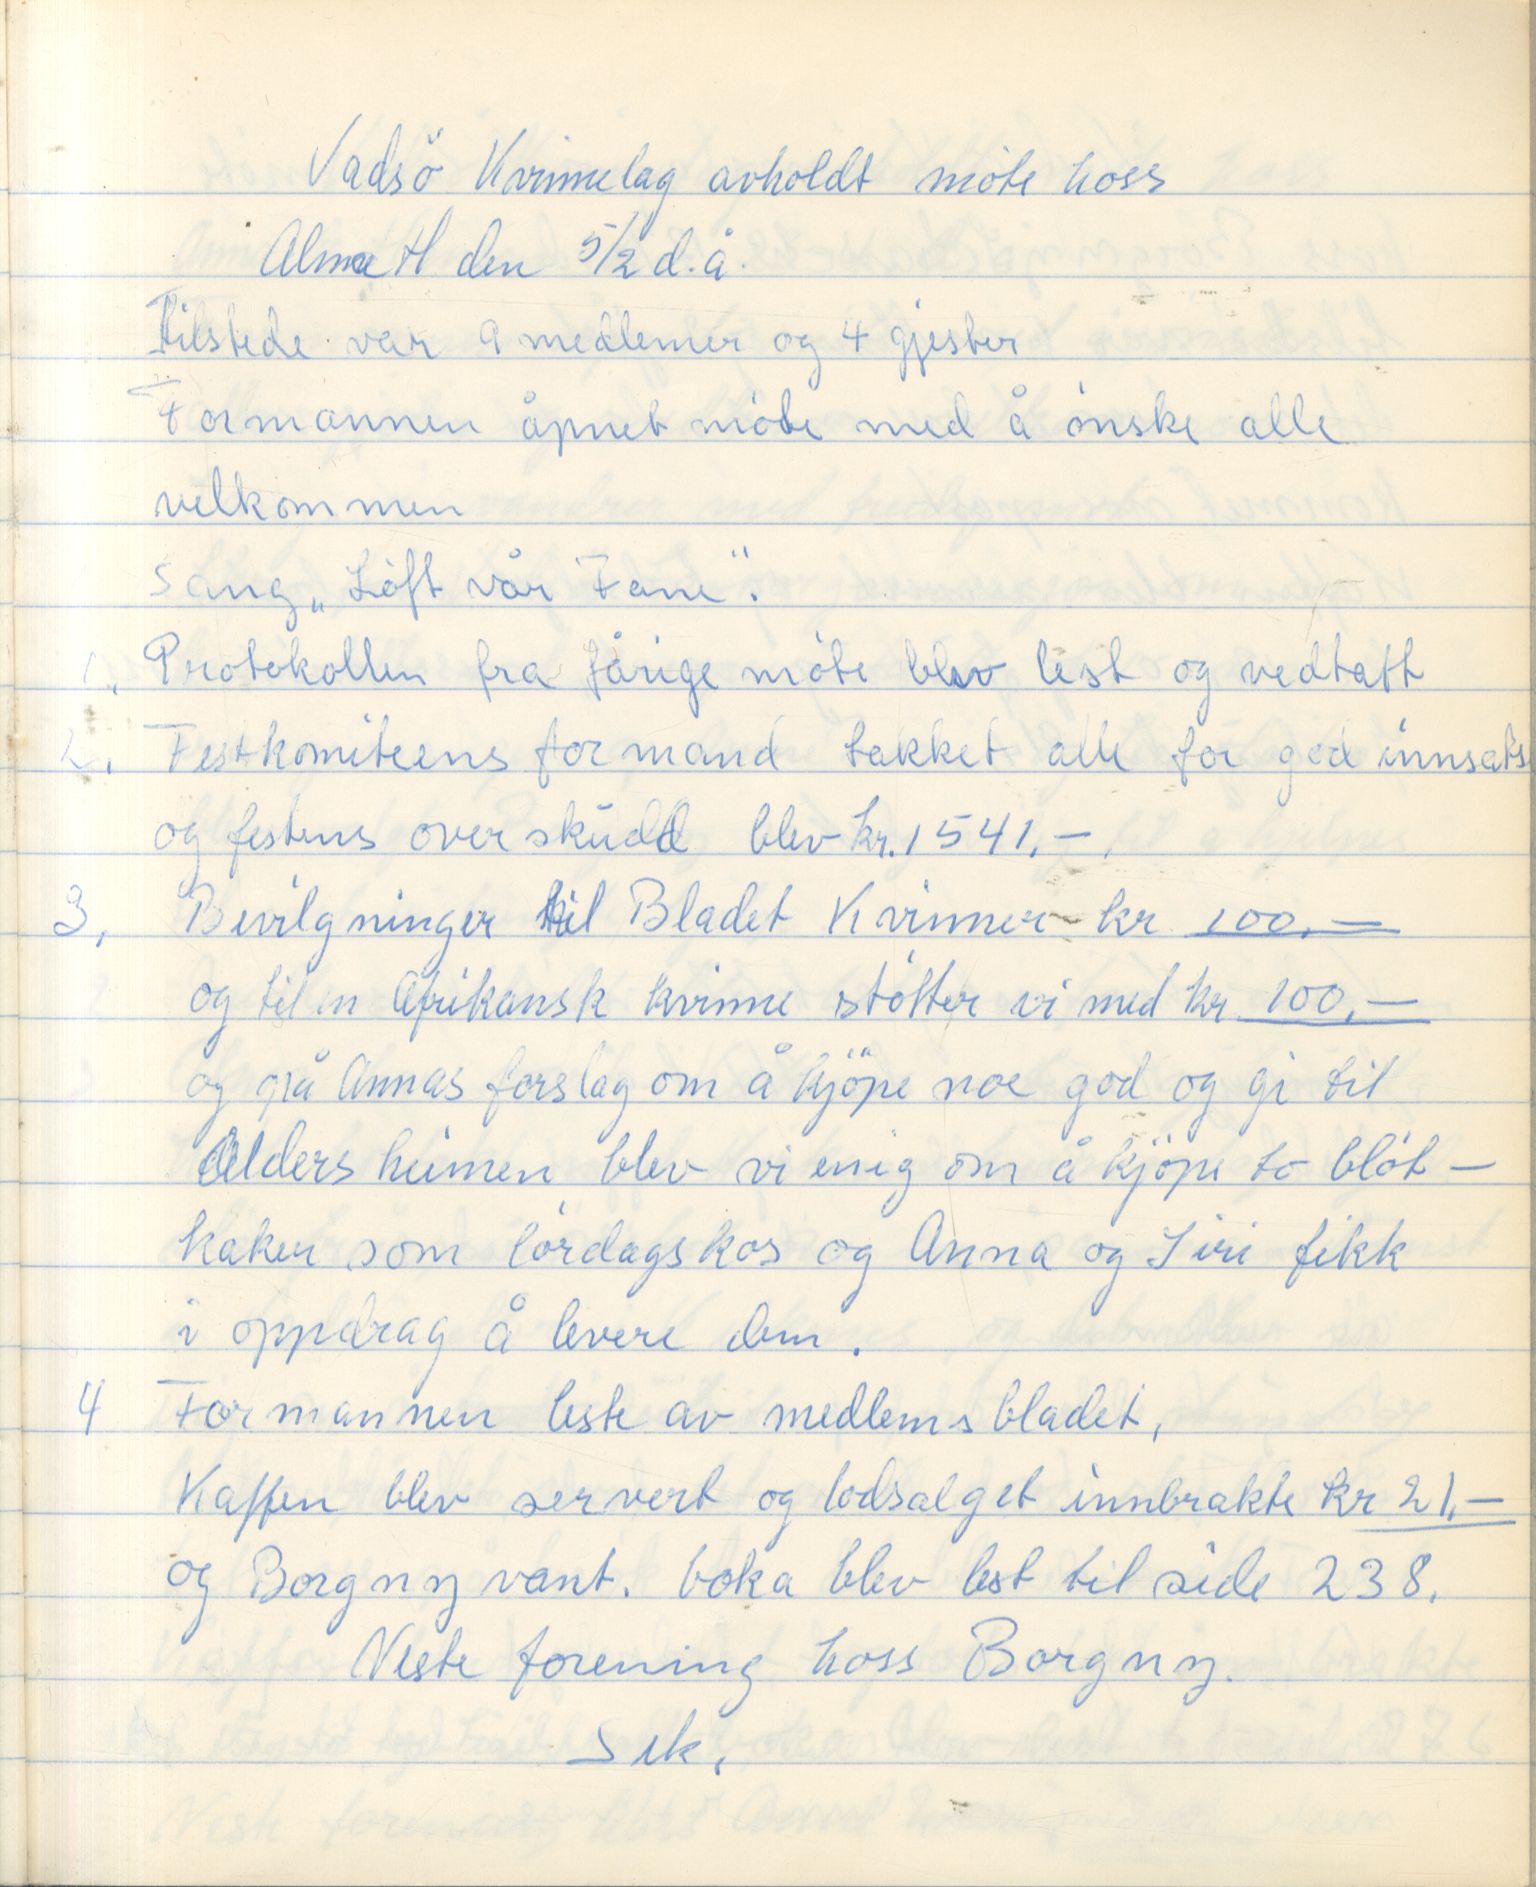 Vadsö Kvinnelag avholdt möte hoss
Alma H den 5/2 d.å.
Tilstede var 9 medlemer og 4 gjester
Formannen åpnet möte med å önske alle
velkommen
Sang „Löft vår Fane".
1. Protokollen fra förige möte blev lest og vedtatt
2. Festkomiteens formand takket alle for god innsats
og festens overskudd blev kr. 1541.-
3. Bevilgninger til Bladet Kvinner kr 100.-
og til en Afrikansk kvinne støtter vi med kr 100.-
og på Annas forslag om å kjöpe noe god og gi til
Aldersheimen blev vi enig om å kjöpe to blöt-
kaker som lördagskos og Anna og Siri fikk
i oppdrag å levere dem.
4 Formannen leste av medlemsbladet,
Kaffen blev servert og lodsalget innbrakte kr 21.-
og Borgny vant. boka blev lest til side 238.
Neste forening hoss Borgny.
Sek.